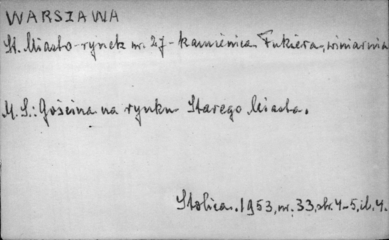 WARSZAWA
St. Miasto - rynek nr. 27 - kamienica Fukiera, winiarnia
M. S.: Gościna na rynku Starego Miasta.
Stolica. 1953, nr. 33, str. 4-5, il. 4.